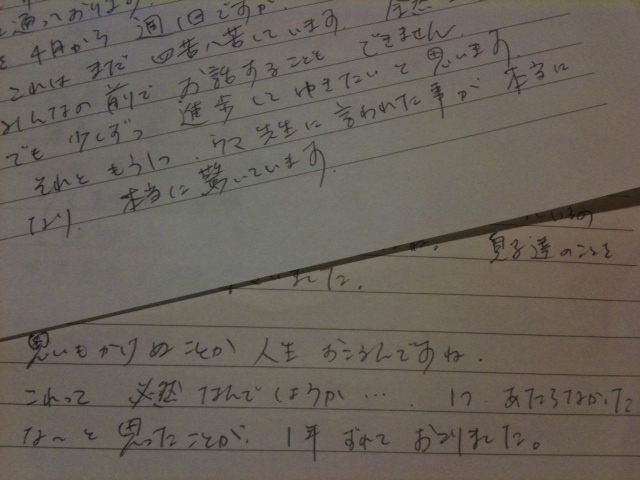 通っております。
4月から 週1日ですが
これは まだ 四苦八苦しています 全然
みんなの前で お話することも できません。
でも 少しずつ 進歩して ゆきたいと 思います
それと もう1つ、ウマ先生に 言われた事が 本当に
なり 本当に 驚いています
息子達のことを
ました。
思いもかけぬことが 人生 おこるんですね。
これって 必然 なんでしょうか…。 1つ あたらなかった
な〜と 思ったことが、1年 ずれて おこりました。